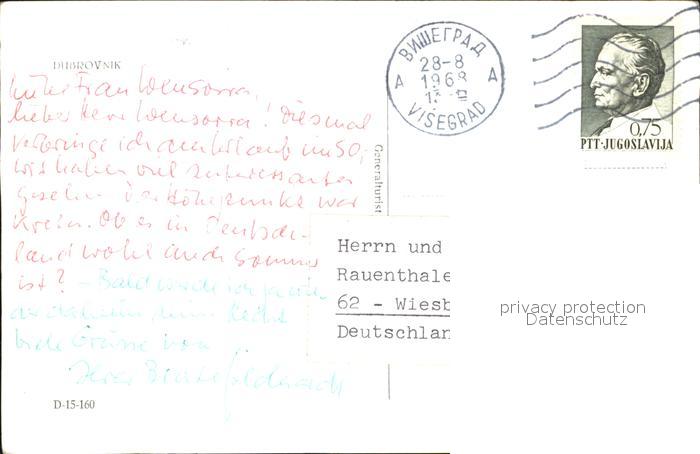 DUBROVNIK
Liebe Frau
lieber Herr ! Diesmal
verbringe ich im SO,
wir haben viel Interessantes
gesehen. Der Höhepunkt war
Ob es in Deutsch-
land wohl auch Sommer
ist? - Bald werde ich ja wie-
der daheim sein. Recht
liebe Grüsse von
D-15-160
Generalturist
ВИШЕГРАД
28-8
1968
A A
VIŠEGRAD
0,75
PTT·JUGOSLAVIJA
Herrn und
Rauenthale
62 - Wiesb
Deutschlan
privacy protection
Datenschutz